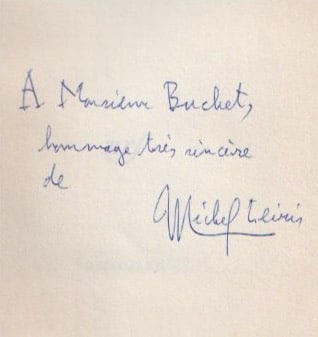 A Monsieur Buchet,
hommage très sincère
de
Michel Leiris